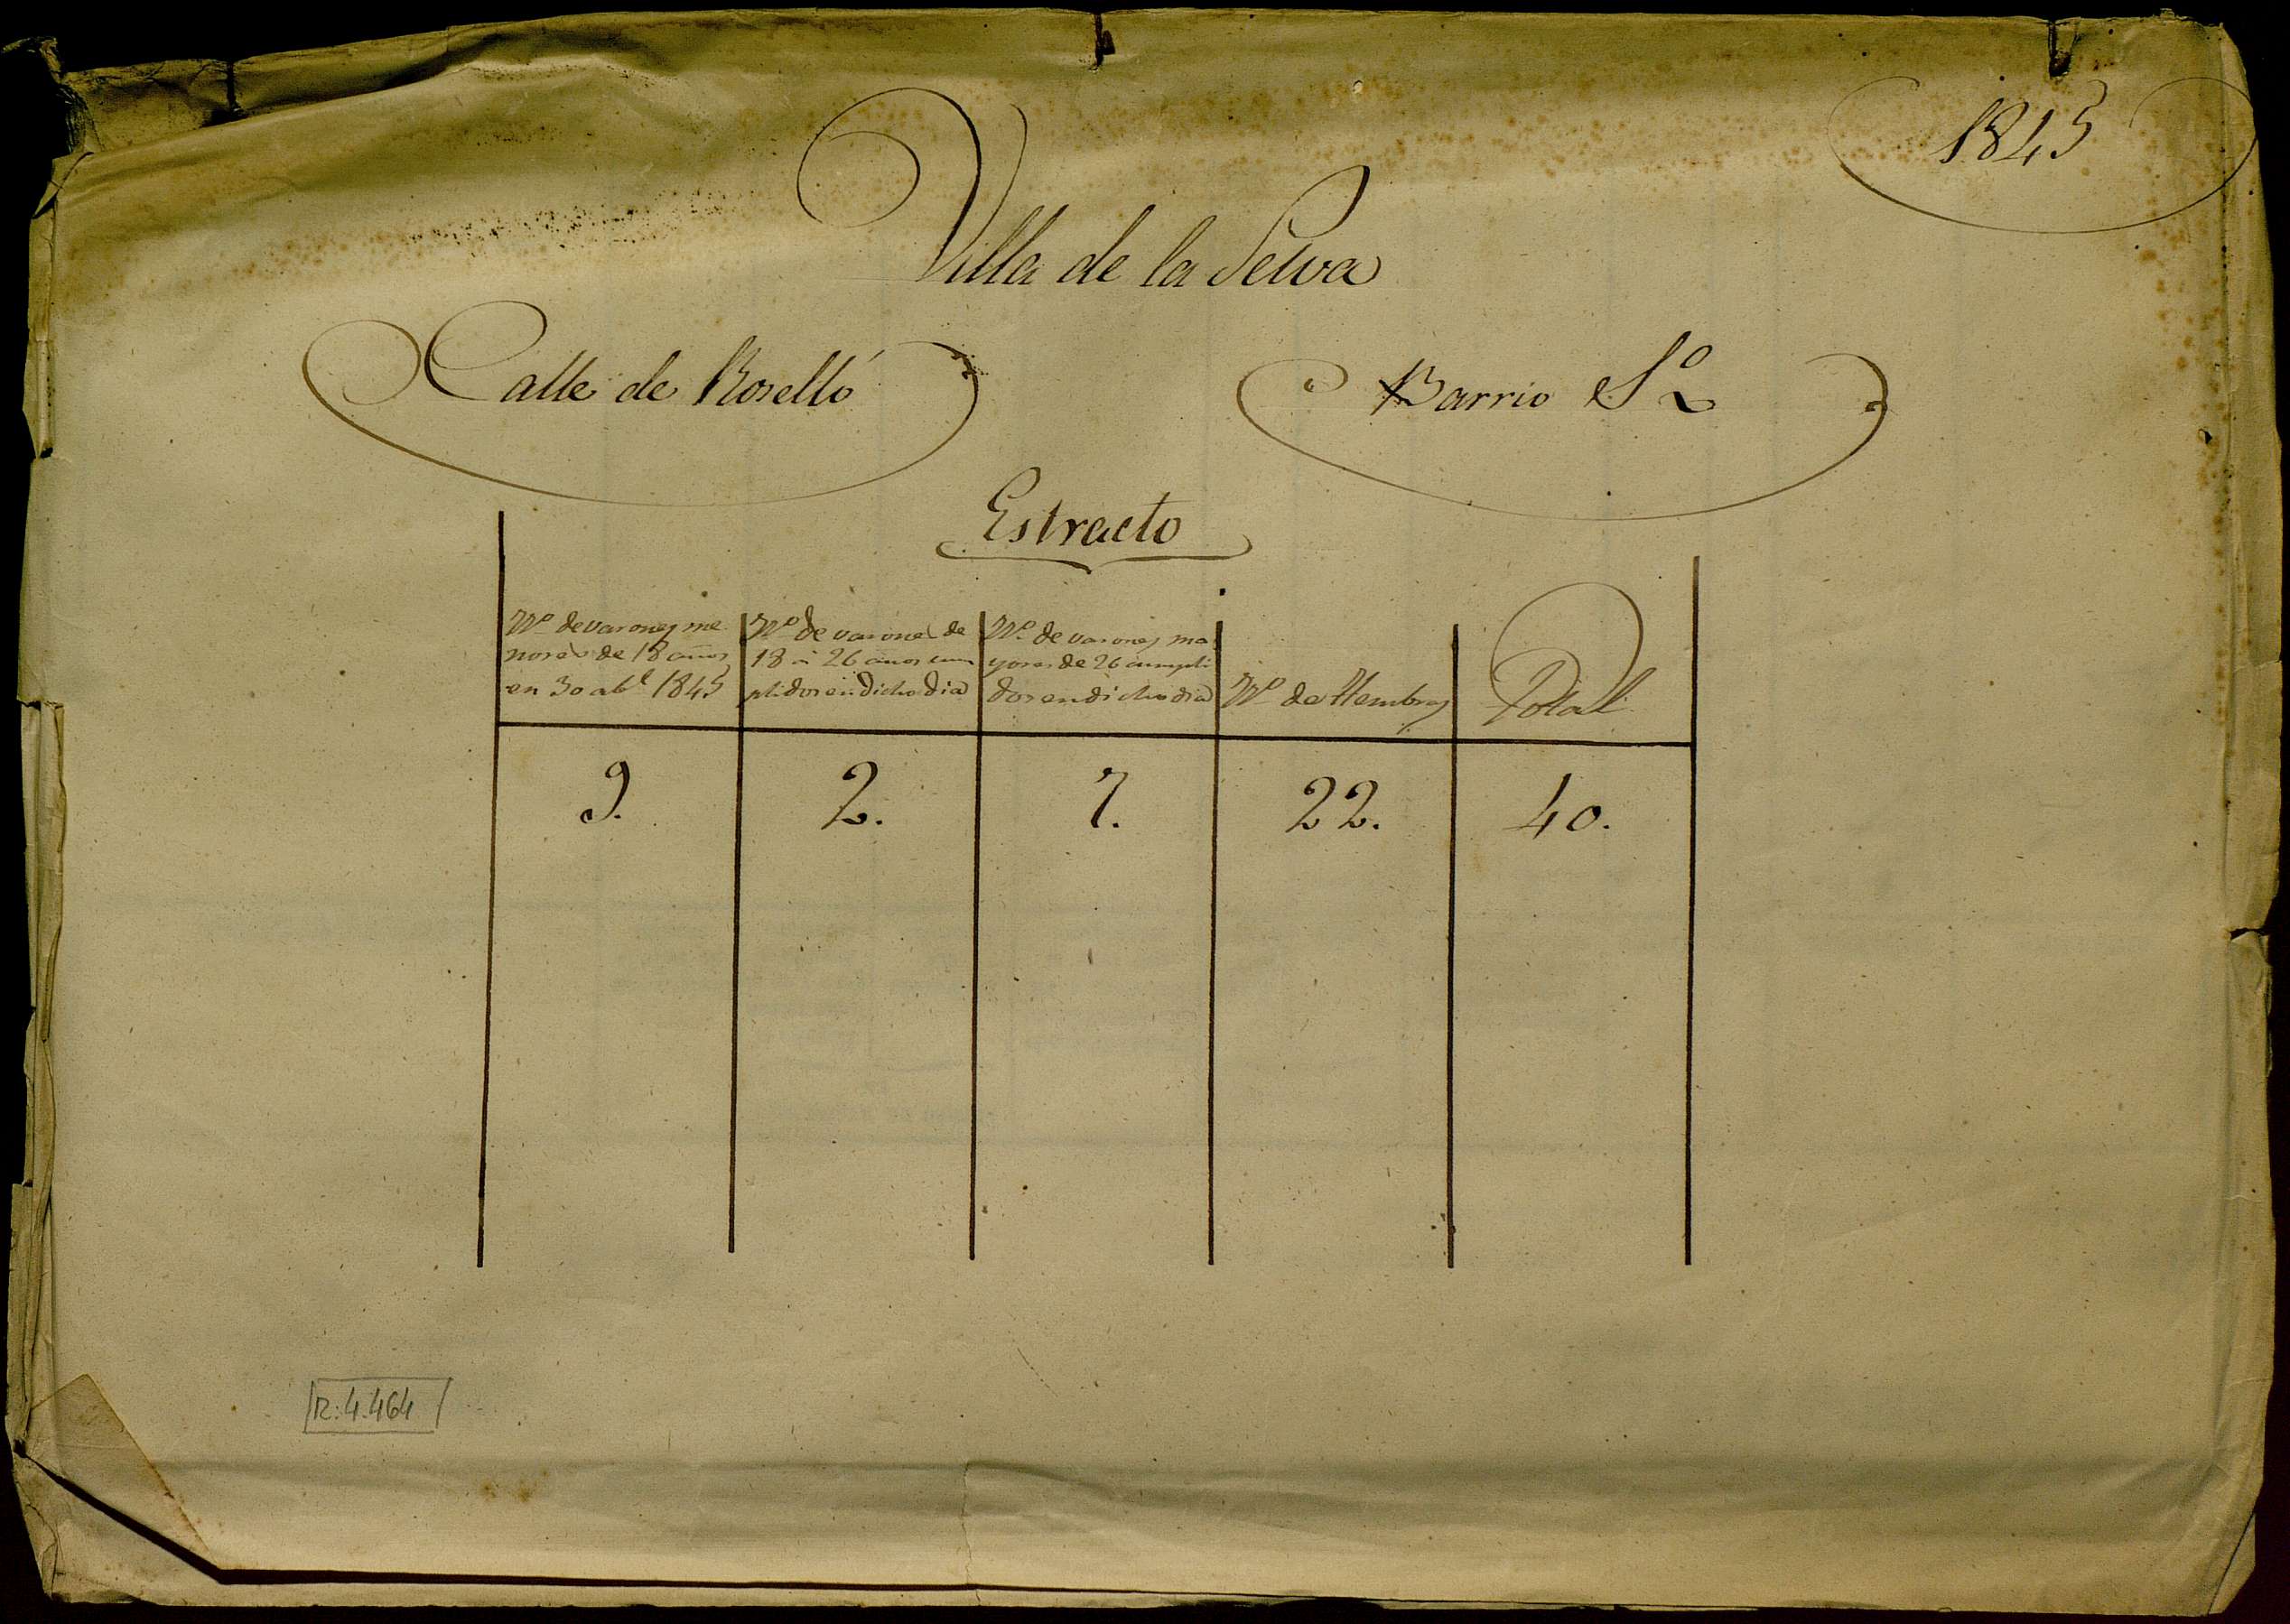 1845
Villa de la Selva
Calle de Roselló
Barrio 1º
Estracto
Nº de varones me
nores de 18 años
en 30 abl 1845
Nº de varones de
18 á 26 años cum
plidos en dicho dia
Nº de varones ma
yores de 26 cumpli
dos en dicho dia
Nº de Hembras
Total
9. 2. 7. 22. 40.
R: 4.464